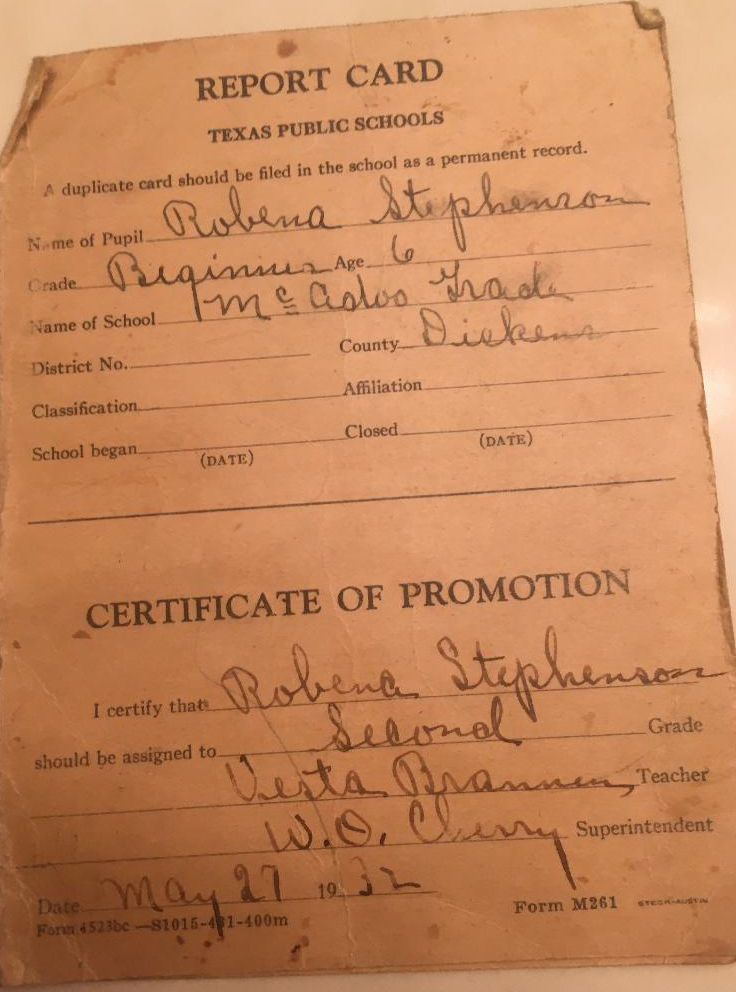 REPORT CARD
TEXAS PUBLIC SCHOOLS
A duplicate card should be filed in the school as a permanent record.
Name of Pupil Robena Stephenson
Grade Beginner Age 6
Name of School Mc Adoo Grade
District No. County Dickens
Classification Affiliation
School began Closed
(DATE) (DATE)
CERTIFICATE OF PROMOTION
I certify that Robena Stephenson
should be assigned to Second Grade
Vesta Brannen, Teacher
W.O. Cherry Superintendent
Date May 27 1932
Form M261 STECK-AUSTIN
Form 4523bc—S1015-431-400m